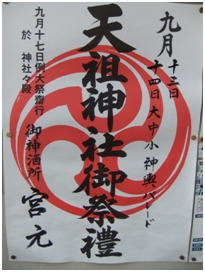 九月 十三日
十四日 大中小 神輿パレード
天祖神社御祭禮
九月十七日例大祭齋行
於 神社々殿
御神酒所 宮元